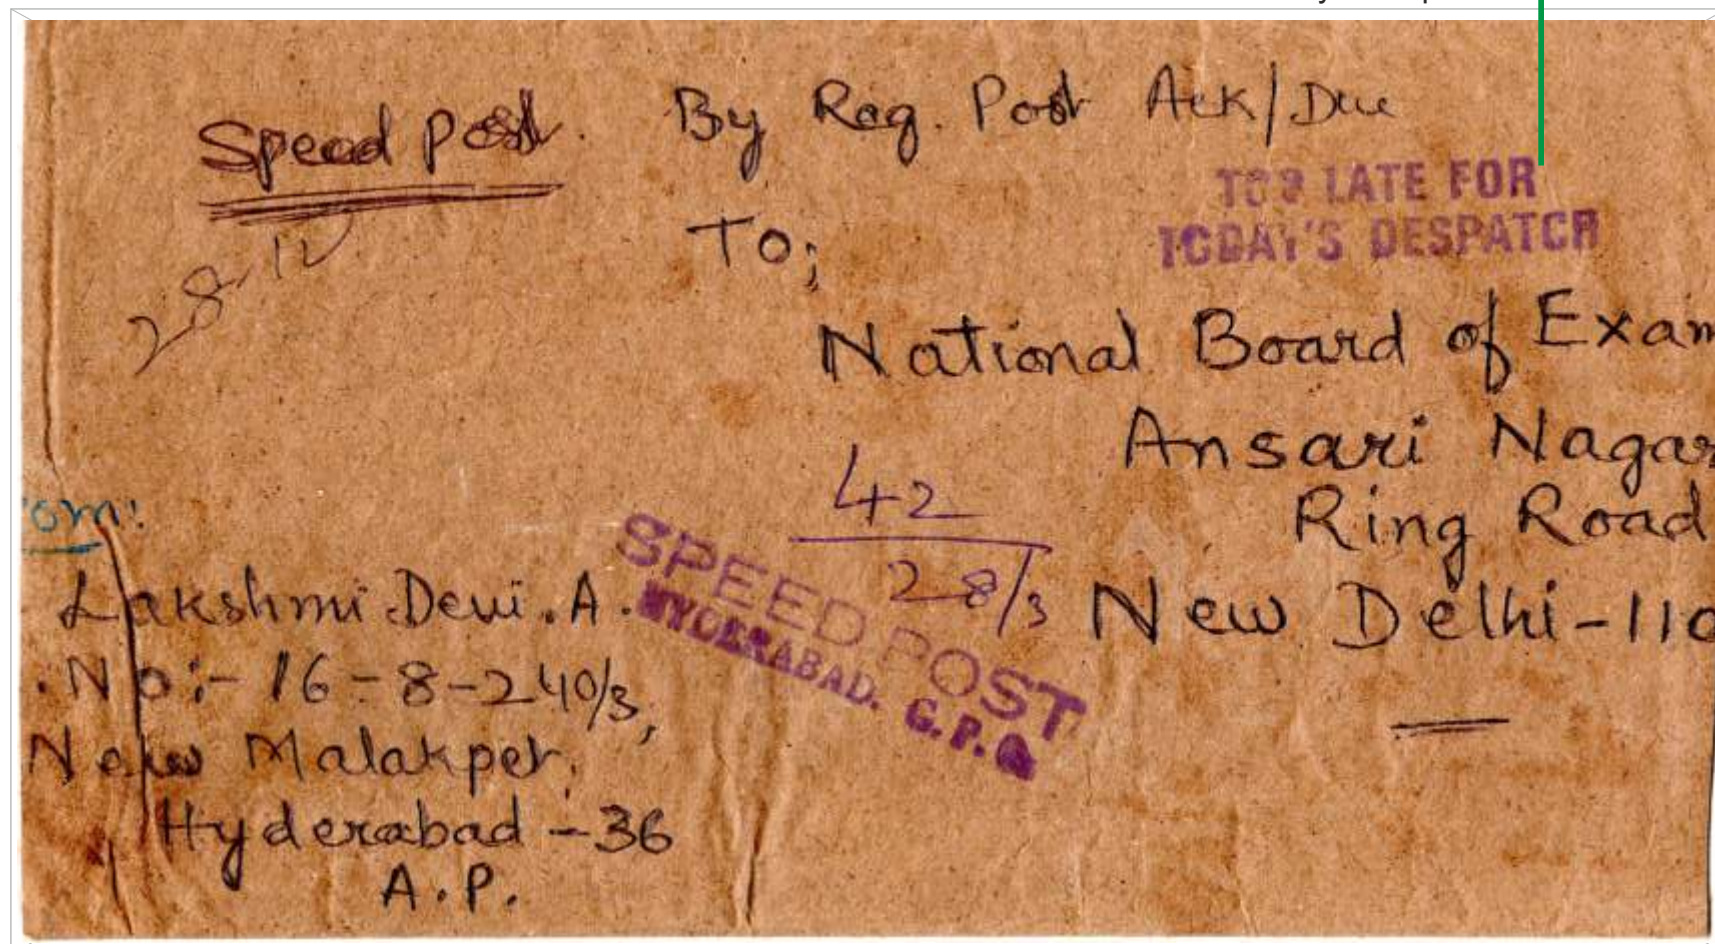 Speed post. By Reg. Post Ack/Due
TOO LATE FOR
TODAY'S DESPATCH
To;
28-12
National Board of Exam
Ansari Nagar
Ring Road
New Delhi-110
42
28/3
SPEED POST
HYDERABAD. G.P.O
om:
Lakshmi Devi. A.
.No:- 16-8-240/3,
New Malakpet,
Hyderabad -36
A.P.